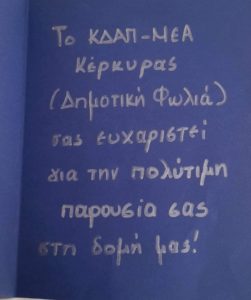 Το ΚΔΑΠ-ΜΕΑ
Κέρκυρας
(Δημοτική Φωλιά)
σας ευχαριστεί
για την πολύτιμη
παρουσία σας
στη δομή μας!